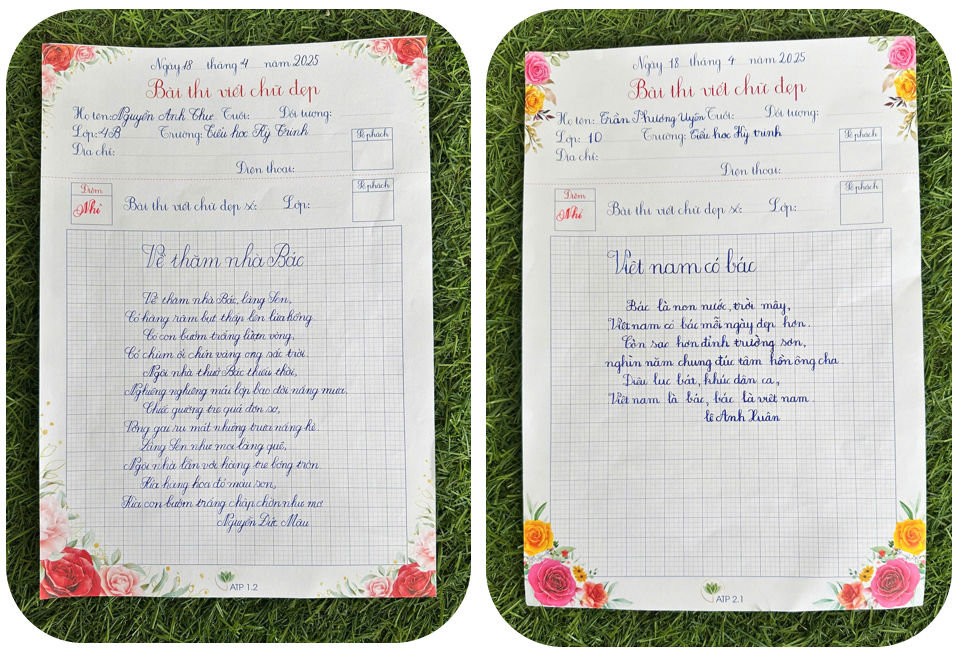 Ngày 18 tháng 4 năm 2025
Bài thi viết chữ đẹp
Họ tên: Nguyễn Anh Thư Tuổi: Đối tượng:
Lớp: 4B Trường: Tiểu học Kỳ Trinh
Địa chỉ:
Điện thoại:
Số phách
Điểm
Nhì
Bài thi viết chữ đẹp số: Lớp:
Số phách
Về thăm nhà Bác
Về thăm nhà Bác, làng Sen,
Có hàng râm bụt thắp lên lửa hồng.
Có con bướm trắng lượn vòng,
Có chùm ổi chín vàng ong sắc trời.
Ngôi nhà thuở Bác thiếu thời,
Nghiêng nghiêng mái lợp bao đời nắng mưa.
Chiếc giường tre quá đơn sơ,
Võng gai ru mát những trưa nắng hè.
Làng Sen như mọi làng quê,
Ngôi nhà lẫn với hàng tre bóng tròn.
Kìa hàng hoa đỏ màu son,
Kìa con bướm trắng chập chờn như mơ
Nguyễn Đức Mậu
ATP 1.2
Ngày 18 tháng 4 năm 2025
Bài thi viết chữ đẹp
Họ tên: Trần Phương Uyên Tuổi: Đối tượng:
Lớp: 1D Trường: Tiểu học Kỳ trinh
Địa chỉ:
Điện thoại:
Số phách
Điểm
Nhì
Bài thi viết chữ đẹp số: Lớp:
Số phách
Việt nam có bác
Bác là non nước, trời mây,
Việt nam có bác mỗi ngày đẹp hơn.
Còn sao hơn đỉnh trường sơn,
nghìn năm chung đúc tâm hồn ông cha.
Điệu lục bát, khúc dân ca,
Việt nam là bác, bác là việt nam.
lê Anh Xuân
ATP 2.1